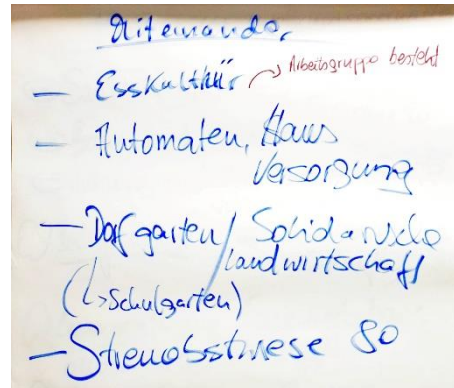 Miteinander
– Esskulthür → Arbeitsgruppe besteht
– Automaten, Haus
Versorgung
– Dorfgarten / Solidarische
Landwirtschaft
(↳ Schulgarten)
– Streuobstwiese 80